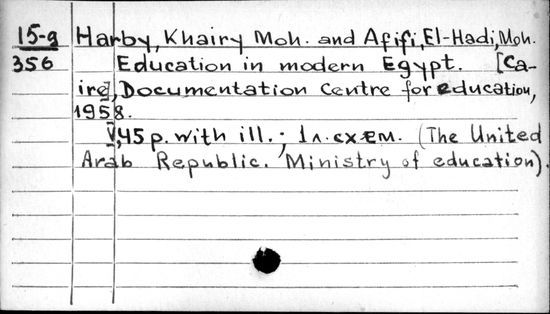 15-g Harby, Khairy Moh. and Afifi, El-Hadi, Moh.
356 Education in modern Egypt. [Ca-
ire], Documentation Centre for education,
1958.
V, 45 p. with ill.; 1 л. схем. (The United
Arab Republic. Ministry of education).